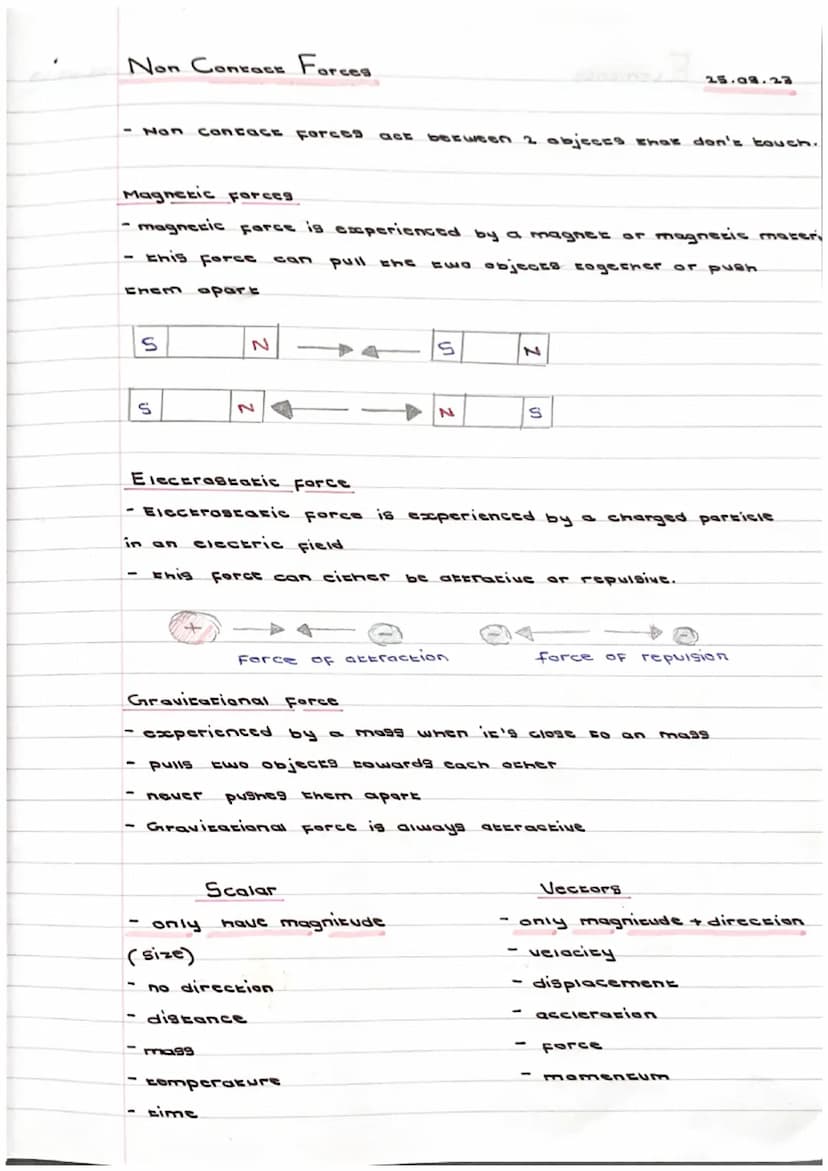 Non Contact Forces
25.09.23
- Non contact forces act between 2 objects that don't touch.
Magnetic forces
- magnetic force is experienced by a magnet or magnetic materi
- this force can pull the two objects together or push
them apart
S N S N
S N N S
Electrostatic force
- Electrostatic force is experienced by a charged particle
in an electric field
- this force can either be attrative or repulsive.
+ - - -
Force of attraction force of repulsion
Gravitational Force
- experienced by a mass when it's close to an mass
- pulls two objects towards each other
- never pushes them apart
- Gravitational force is always attractive
Scalar Vectors
- only have magnitude
(size)
- no direction
- distance
- mass
- temperature
- time
- only magnitude + direction
- velocity
- displacement
- accleration
- force
- momentum